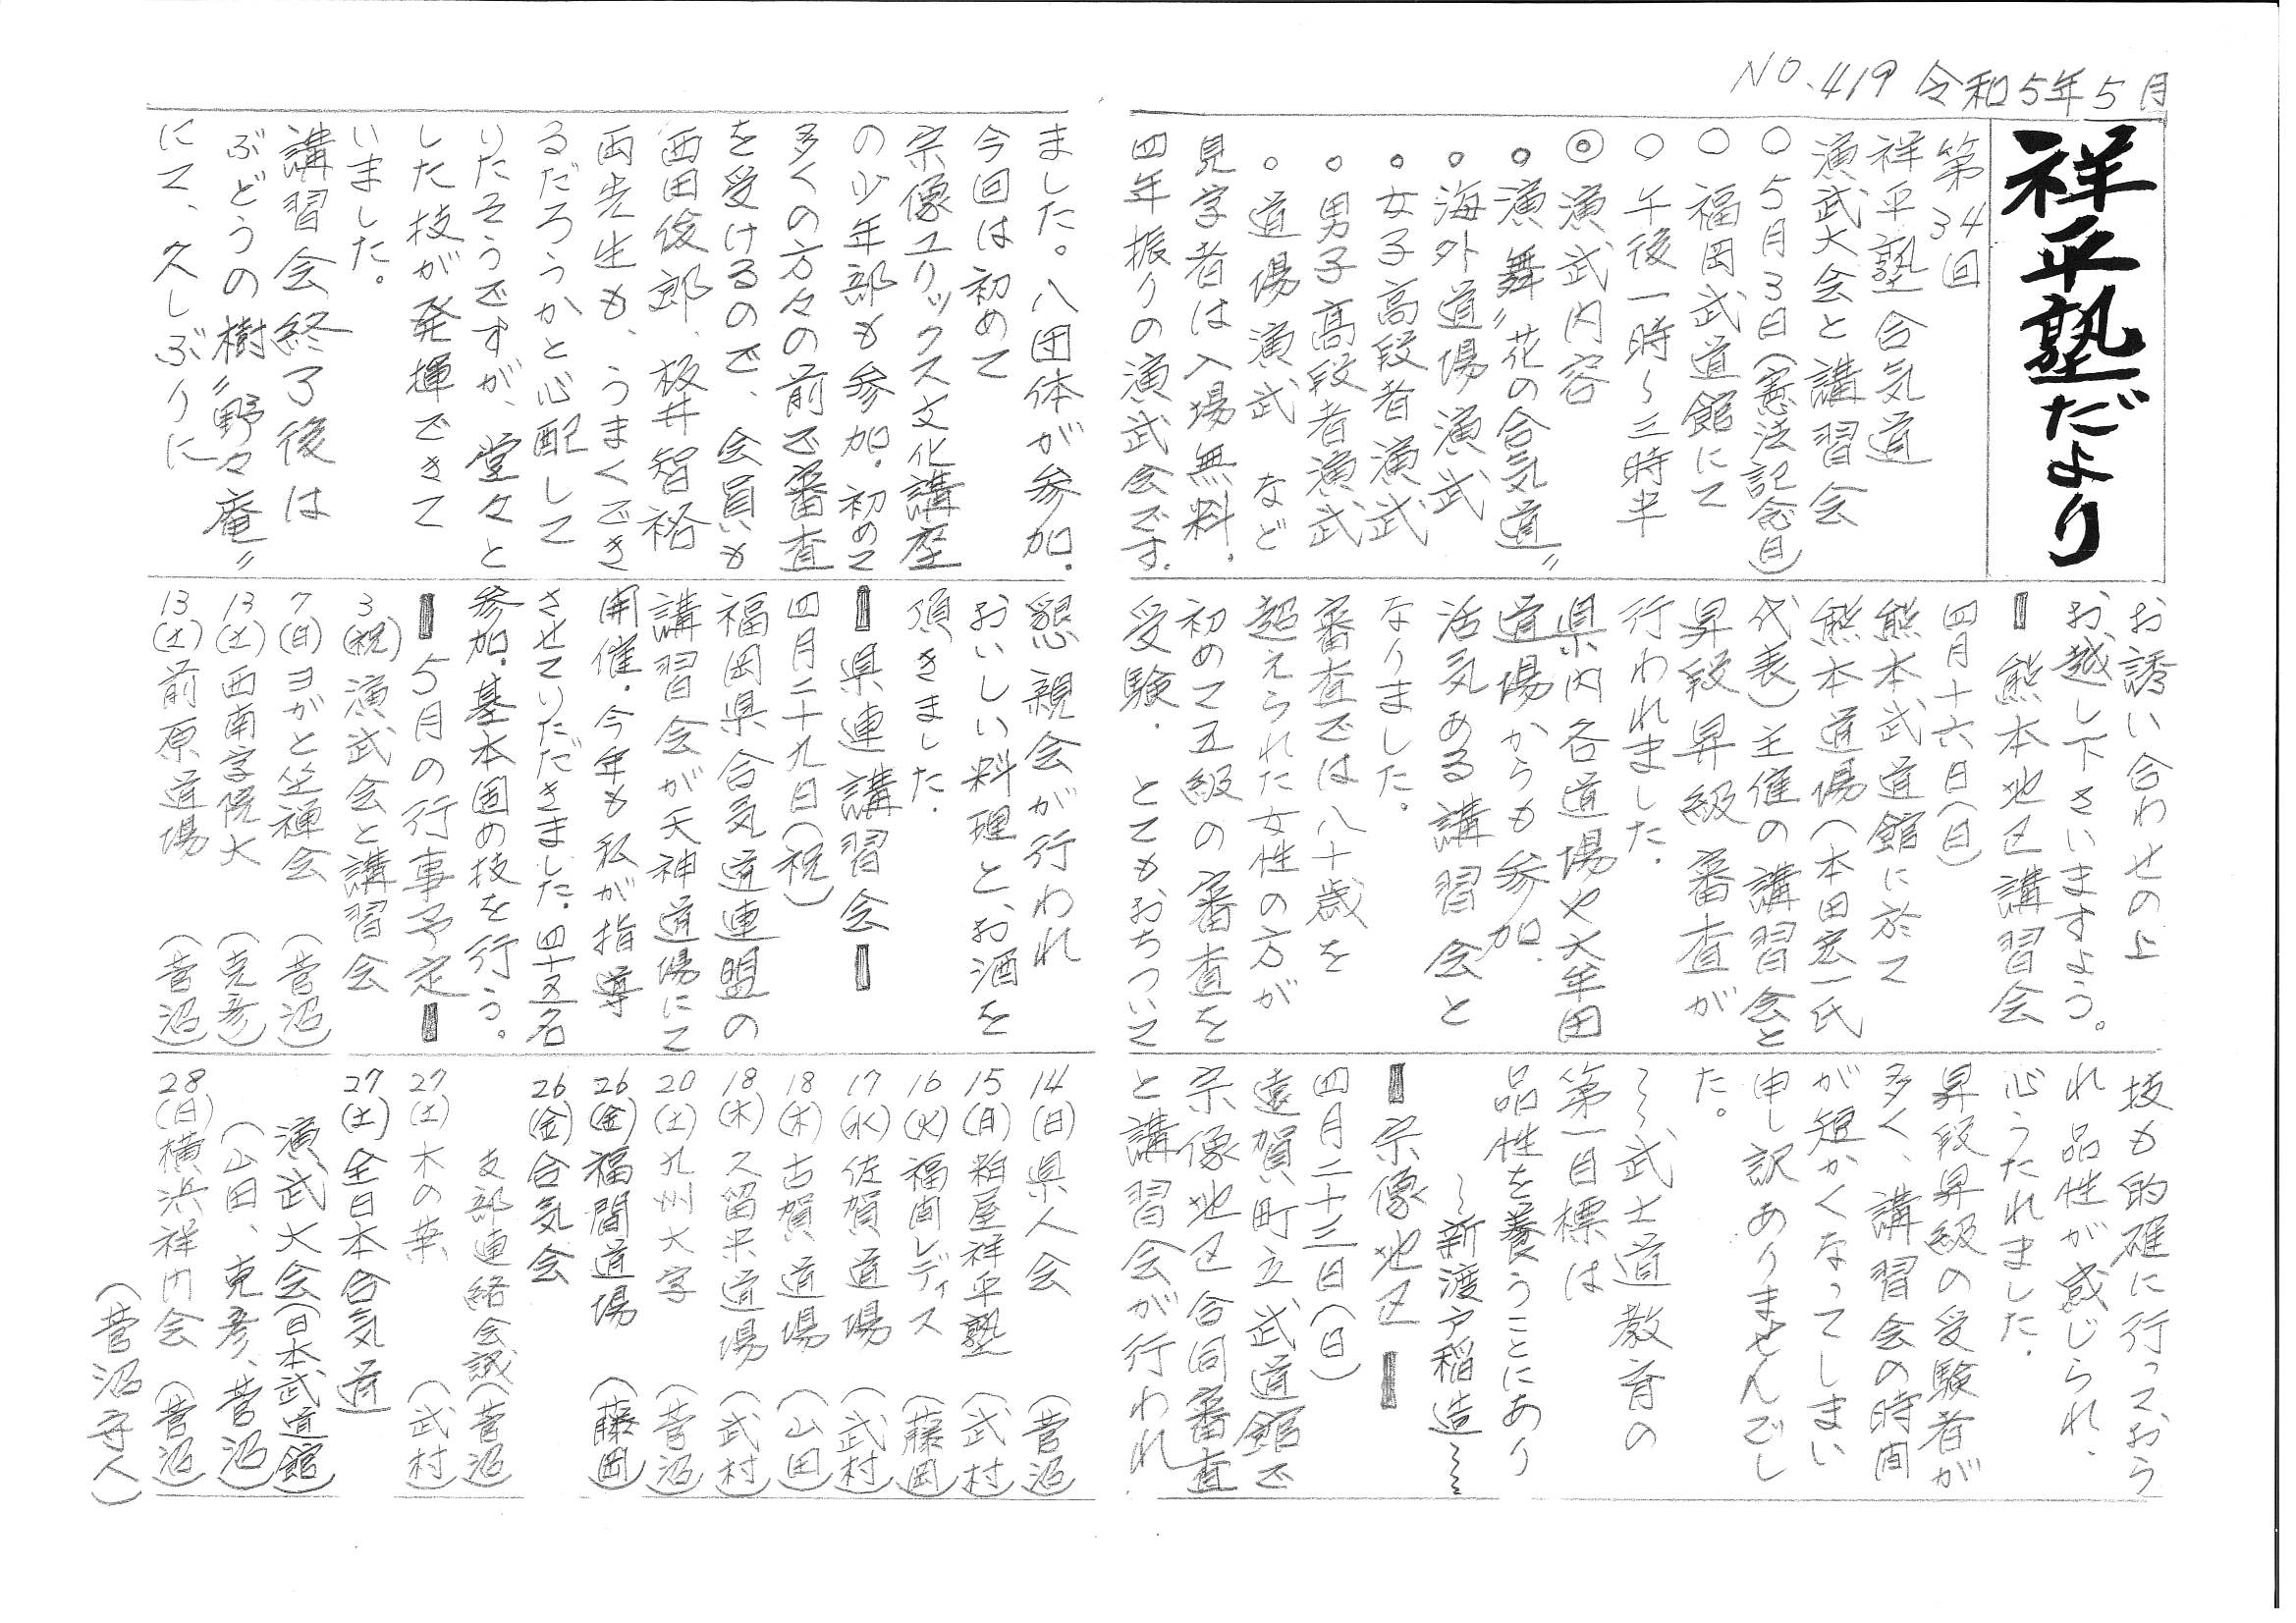 NO.419 令和5年5月
祥平塾だより
第34回
祥平塾合気道
演武大会と講習会
○5月3日(憲法記念日)
○福岡武道館にて
○午後一時〜三時半
◎演武内容
。演舞〝花の合気道〟
。海外道場演武
。女子高段者演武
。男子高段者演武
。道場演武 など
見学者は入場無料.
四年振りの演武会です.
お誘い合わせの上
お越し下さいますよう。
熊本地区講習会
四月十六日(日)
熊本武道館に於て
熊本道場(本田宏一氏
代表)主催の講習会と
昇段昇級審査が
行われました.
県内各道場や大牟田
道場からも参加.
活気ある講習会と
なりました。
審査では八十歳を
超えられた女性の方が
初めて五級の審査を
受験. とてもおちついて
技も的確に行っておら
れ品性が感じられ、
心うたれました.
昇段昇級の受験者が
多く、講習会の時間
が短かくなってしまい
申し訳ありませんでし
た。
〜〜武士道教育の
第一目標は
品性を養うことにあり
〜新渡戸稲造〜〜
宗像地区
四月二十三日(日)
遠賀町立武道館で
宗像地区合同審査
と講習会が行われ
ました。八団体が参加.
今回は初めて
宗像ユリックス文化講座
の少年部も参加.初めて
多くの方々の前で審査
を受けるので、会員も
西田俊郎、板井智裕
両先生も、うまくでき
るだろうかと心配して
りたそうですが、堂々と
した技が発揮できて
いました。
講習会終了後は
ぶどうの樹〝野々庵〟
にて、久しぶりに
懇親会が行われ
おいしい料理と、お酒を
頂きました.
県連講習会
四月二十九日(祝)
福岡県合気道連盟の
講習会が天神道場にて
開催.今年も私が指導
させていただきました.四十五名
参加.基本固め技を行う。
5月の行事予定
3(祝)演武会と講習会
7(日)ヨガと坐禅会 (菅沼)
13(土)西南学院大 (克彦)
13(土)前原道場 (菅沼)
14(日)県人会 (菅沼)
15(月)粕屋祥平塾 (武村)
16(火)福間レディス (藤岡)
17(水)佐賀道場 (武村)
18(木)古賀道場 (山田)
18(木)久留米道場 (武村)
20(土)九州大学 (菅沼)
26(金)福間道場 (藤岡)
26(金)合気会
支部連絡会議(菅沼)
27(土)木の葉 (武村)
27(土)全日本合気道
演武大会(日本武道館)
(山田、克彦、菅沼)
28(日)横浜祥内会 (菅沼)
(菅沼守人)